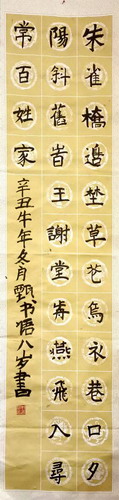 朱雀橋邊埜草花烏衣巷口夕
陽斜舊峕王謝堂歬燕飛入尋
常百姓家
辛丑牛年冬月甄书愽八岁書